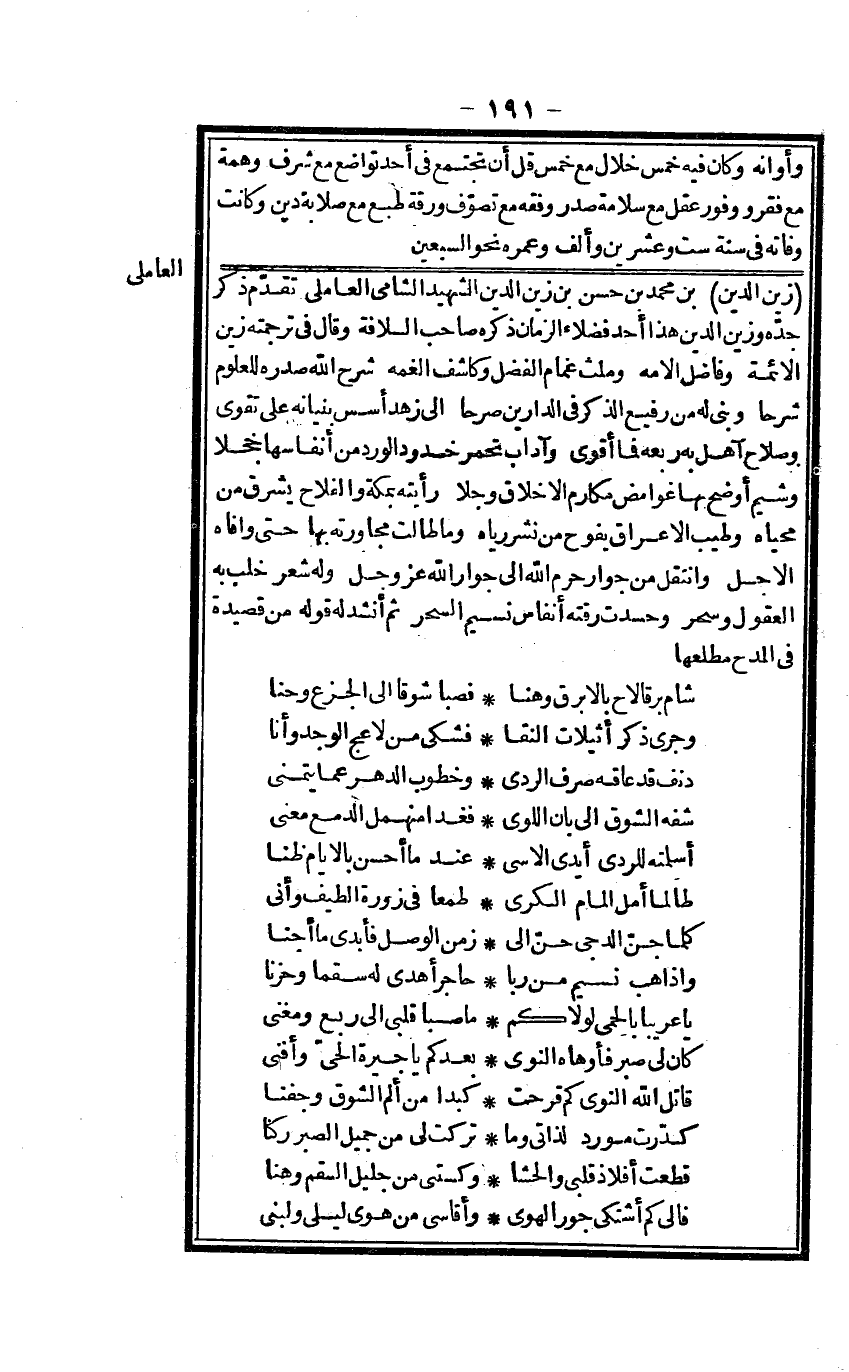 - ١٩١ -
وأوانه وكان فيه خمس خلال مع خمس قل أن تجتمع فى أحد تواضع مع شرف وهمة
مع فقر ووفور عقل مع سلامة صدر وفقه مع تصوّف ورقة طبع مع صلابة دين وكانت
وفاته فى سنة ست وعشرين وألف وعمره نحو السبعين
العاملى
(زين الدين) بن محمد بن حسن بن زين الدين الشهيد الشامى العاملى تقدّم ذكر
جدّه وزين الدين هذا أحد فضلاء الزمان ذكره صاحب السلافة وقال فى ترجمته زين
الائمة وفاضل الامه وملث غمام الفضل وكاشف الغمه شرح الله صدره للعلوم
شرحا وبنى له من رفيع الذكر فى الدارين صرحا الى زهد أسس بنيانه على تقوى
وصلاح آهل به ربعه فما أقوى وآداب تحمر خدود الورد من أنفاسها خجلا
وشيم أوضح بها غوامض مكارم الاخلاق وجلا رأيته بمكة والفلاح يشرق من
محياه وطيب الاعراق يفوح من نشر رياه وما طالت مجاورته بها حتى وافاه
الاجل وانتقل من جوار حرم الله الى جوار الله عز وجل وله شعر خلب به
العقول وسحر وحسدت رقته أنفاس نسيم السحر ثم أنشد له قوله من قصيدة
فى المدح مطلعها
شام برقا لاح بالابرق وهنا * فصبا شوقا الى الجزع وحنا
وجرى ذكر أثيلات النقا * فشكى من لاعج الوجد وأنا
دنف قد عاقه صرف الردى * وخطوب الدهر عما يتمنى
شفه الشوق الى بان اللوى * فغدا منهمل الدمع معنى
أسلته للردى أيدى الاسى * عند ما أحسن بالايام ظنا
طالما أمل المام الكرى * طمعا فى زورة الطيف وأنى
كلما جنّ الدجى حنّ الى * زمن الوصل فأبدى ما أجنا
واذا هب نسيم من ربا * حاجر أهدى له سقما وحزنا
يا عريبا بالحمى لولاكم * ما صبا قلبى الى ربع ومغنى
كان لى صبر فأوهاه النوى * بعدكم يا جيرة الحىّ وأفنى
قاتل الله النوى كم قرحت * كبدا من ألم الشوق وجفنا
كدّرت مورد لذاتى وما * تركت لى من جميل الصبر ركنا
قطعت أفلاذ قلبى والحشا * وكستنى من جليل السقم وهنا
فالى كم أشتكى جور الهوى * وأقاسى من هوى ليلى ولبنى